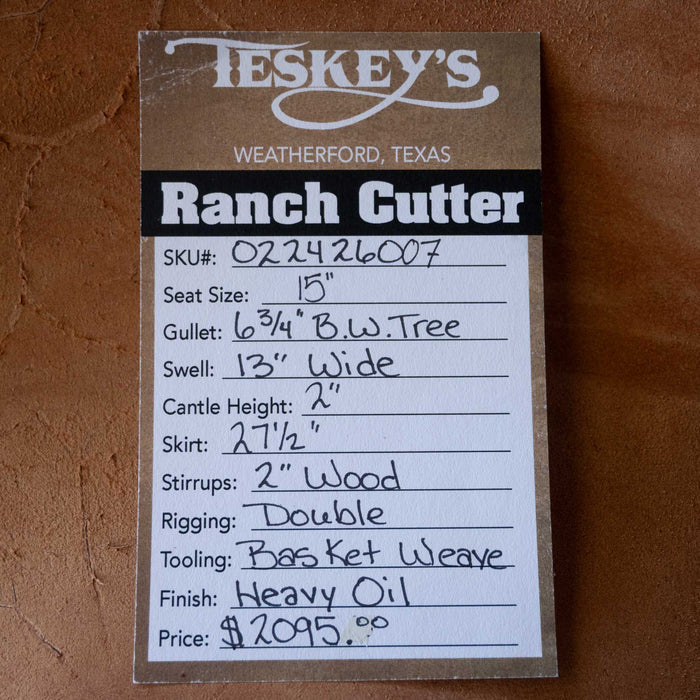 TESKEY'S
WEATHERFORD, TEXAS
Ranch Cutter
SKU#: 022426007
Seat Size: 15"
Gullet: 6 3/4" B.W. Tree
Swell: 13" Wide
Cantle Height: 2"
Skirt: 27 1/2"
Stirrups: 2" Wood
Rigging: Double
Tooling: Basket Weave
Finish: Heavy Oil
Price: $2095.00